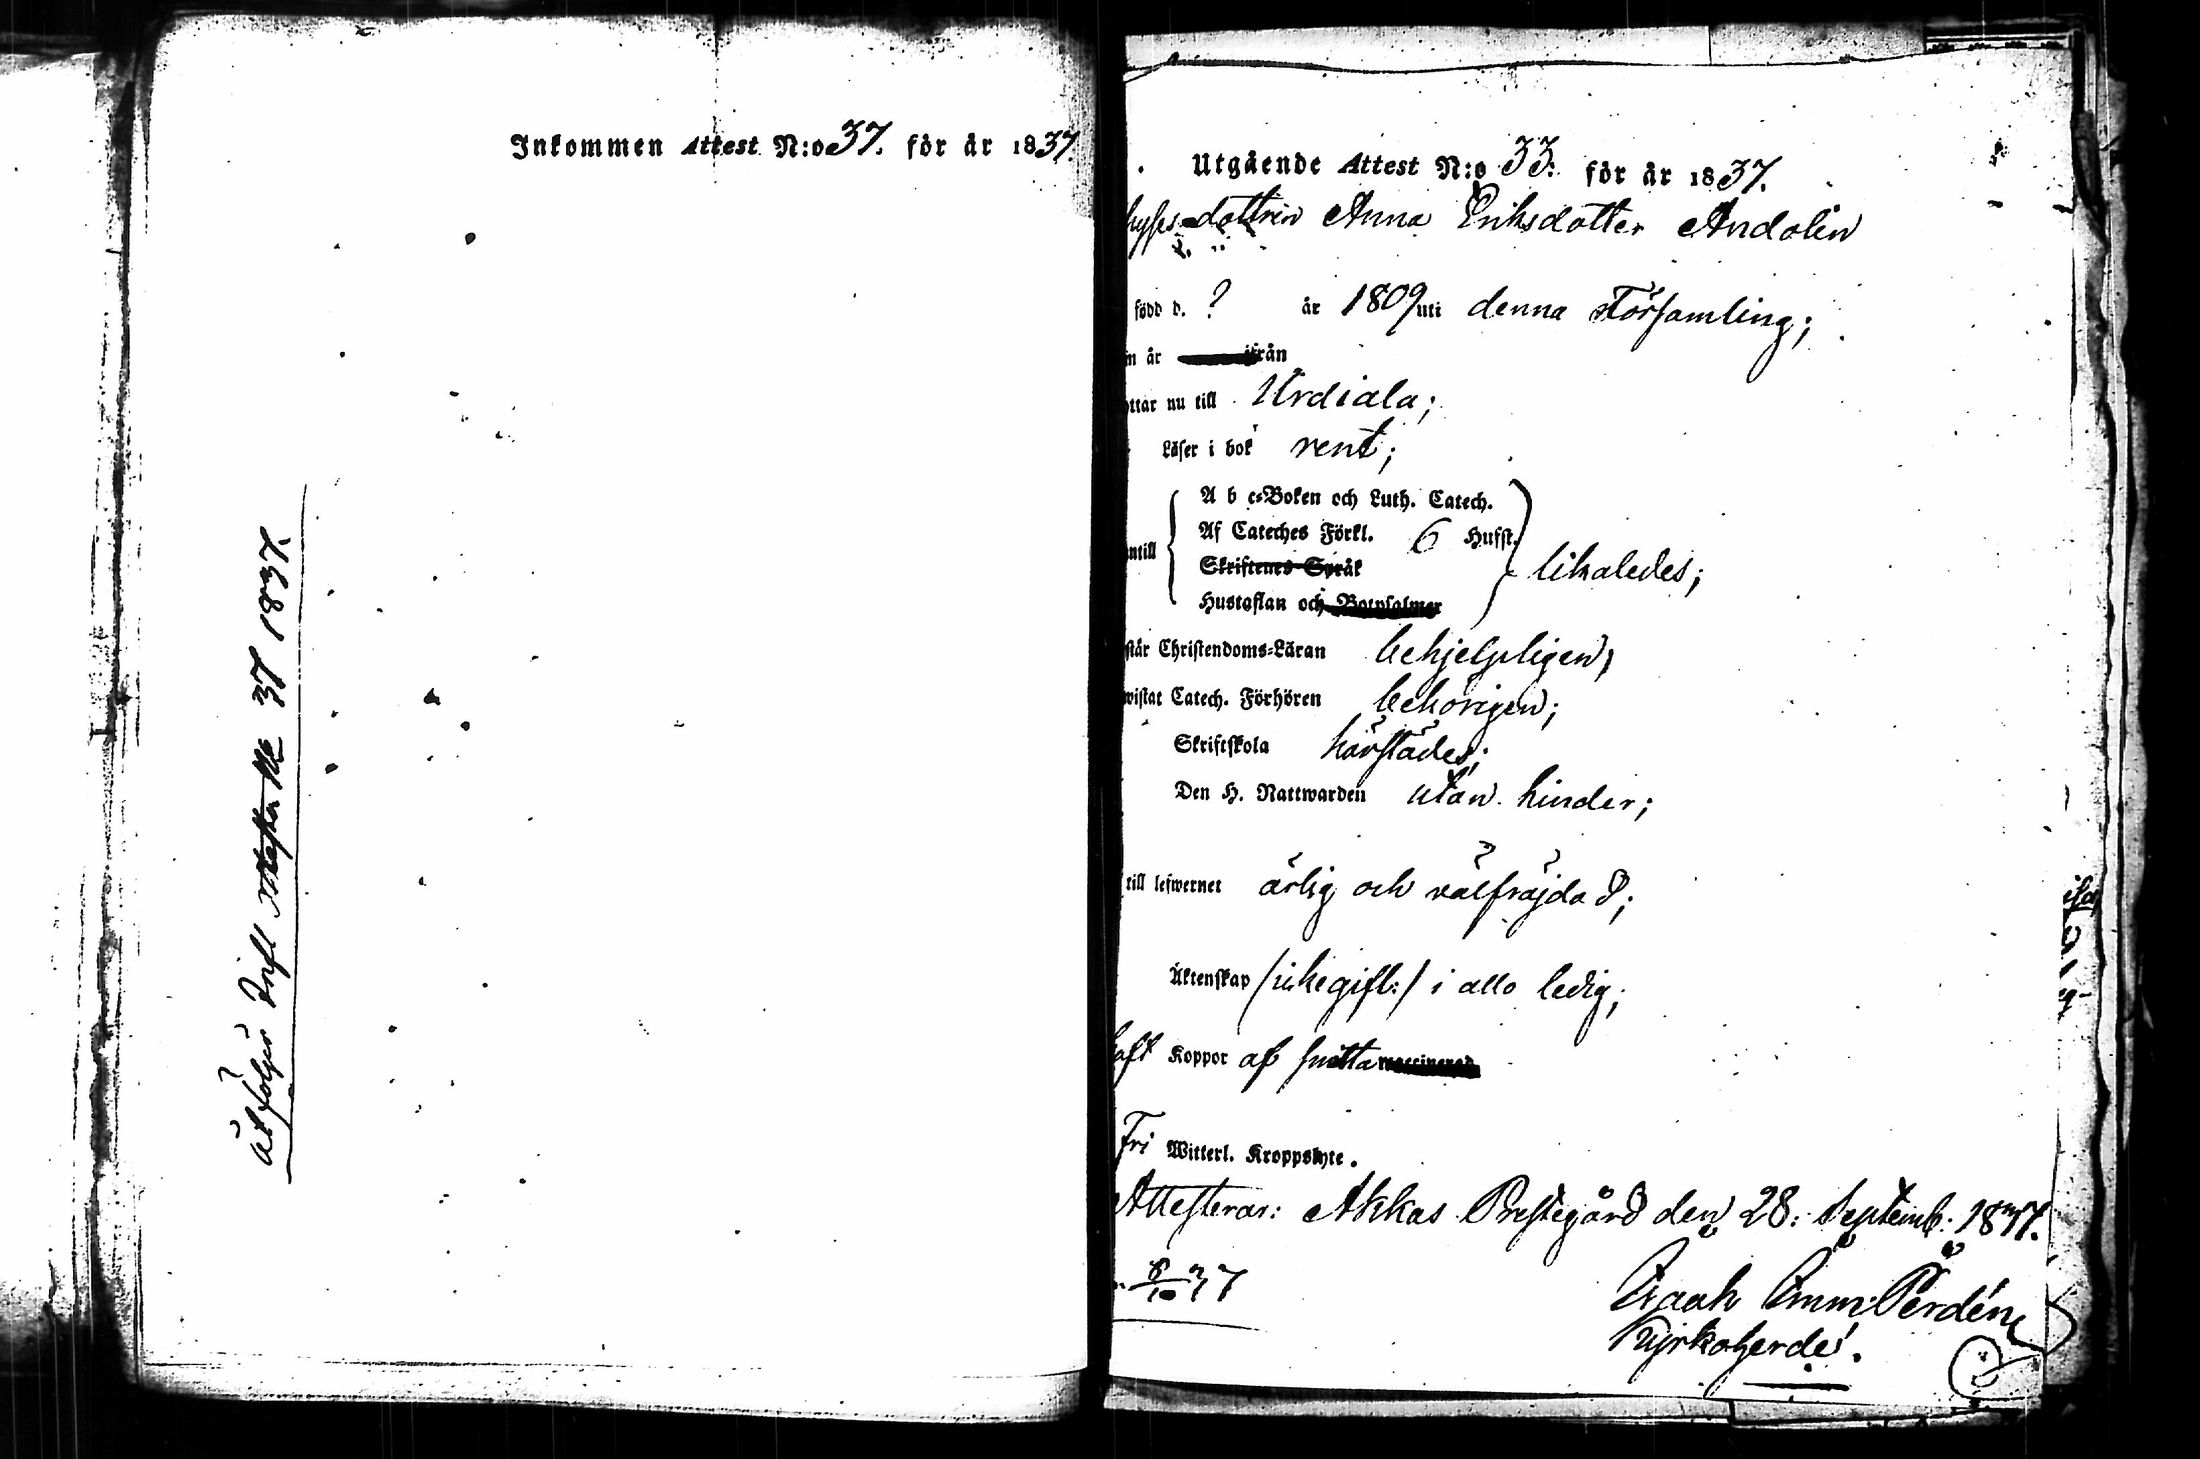 Inkommen Attest N:o 37. för år 1837.
åtföljes 37 1837.
Utgående Attest N:o 33: för år 1837.
dottren Anna Eriksdotter Andolin
född d. ? år 1809 uti denna Församling;
år ifrån
nu till Urdiala;
Läser i bok rent;
A b c-Boken och Luth. Catech.
Af Cateches Förkl. 6 Hufst.
Skriftenes Språk
Hustaflan och Botpsalmer
likaledes;
Christendoms-Läran behjelpligen;
Catech. Förhören behörigen;
Skriftskola härstädes;
Den H. Nattwarden utan hinder;
till lefwernet ärlig och välfräjdad;
Äktenskap (icke gift:) i allo ledig;
haft Koppor af smitta vaccinerad
Fri Witterl. Kroppslyte.
Attesterar: Akkas Prestegård den 28: Septemb: 1837.
8/10 37
Isaak Emm: Perdén
Kyrkoherde.